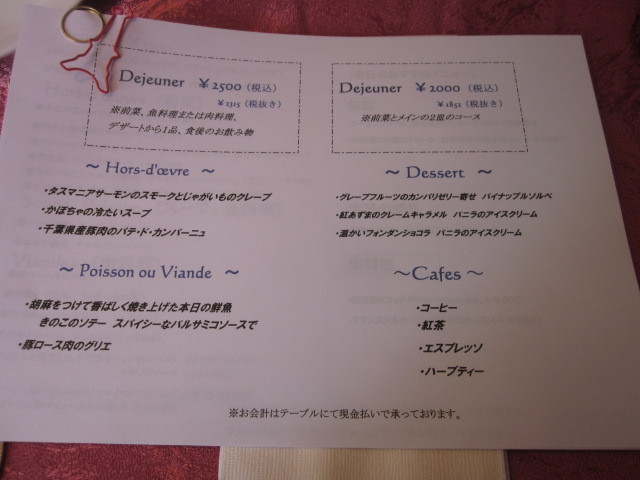 Dejeuner ¥2500（税込）
¥2315（税抜き）
※前菜、魚料理または肉料理、
デザートから1品、食後のお飲み物
Dejeuner ¥2000（税込）
¥1852（税抜き）
※前菜とメインの2皿のコース
～ Hors-d'œvre ～
・タスマニアサーモンのスモークとじゃがいものクレープ
・かぼちゃの冷たいスープ
・千葉県産豚肉のパテ・ド・カンパーニュ
～ Poisson ou Viande ～
・胡麻をつけて香ばしく焼き上げた本日の鮮魚
きのこのソテー スパイシーなバルサミコソースで
・豚ロース肉のグリエ
～ Dessert ～
・グレープフルーツのカンパリゼリー寄せ パイナップルソルベ
・紅あずまのクレームキャラメル バニラのアイスクリーム
・温かいフォンダンショコラ バニラのアイスクリーム
～Cafes ～
・コーヒー
・紅茶
・エスプレッソ
・ハーブティー
※お会計はテーブルにて現金払いで承っております。